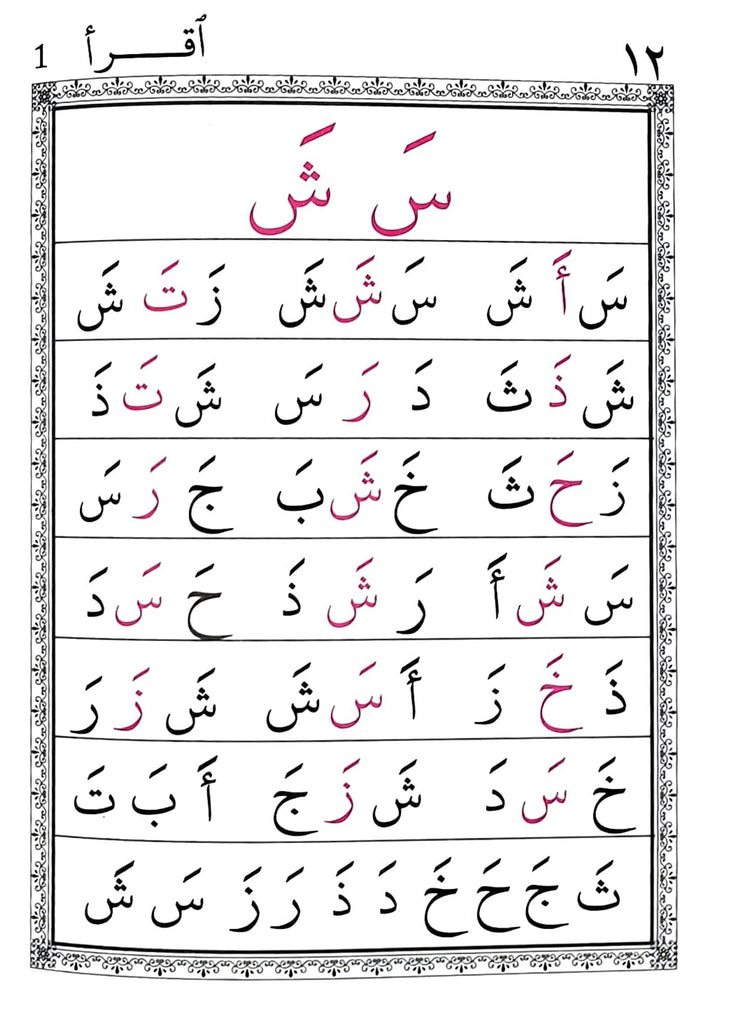 ١٢ ٱقـــرأ 1
سَ شَ
سَ أَ شَ سَ شَ شَ زَ تَ شَ
شَ ذَ ثَ دَ رَ سَ شَ تَ ذَ
زَ حَ ثَ خَ شَ بَ جَ رَ سَ
سَ شَ أَ رَ شَ ذَ حَ سَ دَ
ذَ خَ زَ أَ سَ شَ شَ زَ رَ
خَ سَ دَ شَ زَ جَ أَ بَ تَ
ثَ جَ حَ خَ دَ ذَ رَ زَ سَ شَ